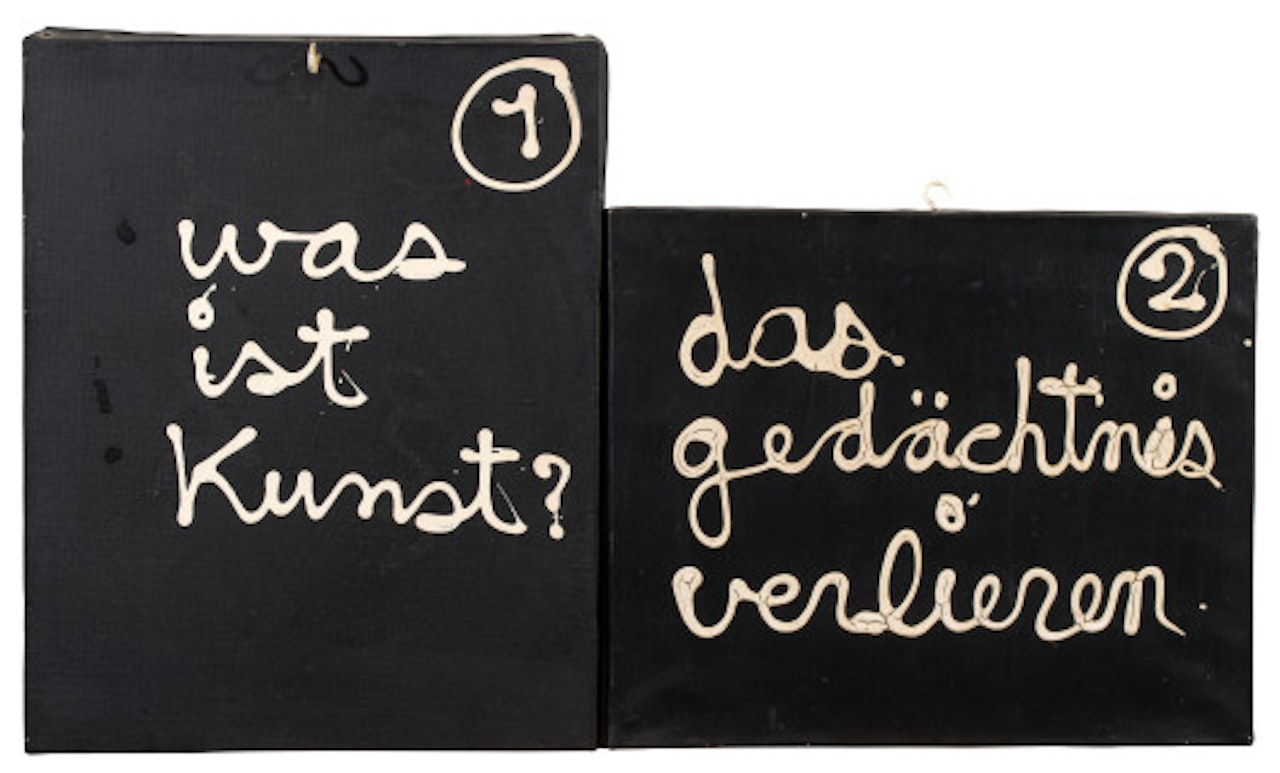 1
was
ist
Kunst?
2
das
gedächtnis
verlieren